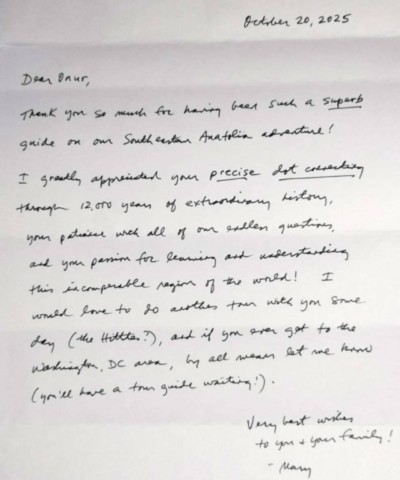 October 20, 2025
Dear Onur,
Thank you so much for having been such a superb
guide on our Southeastern Anatolia adventure!
I greatly appreciated your precise dot connecting
through 12,000 years of extraordinary history,
your patience with all of our endless questions,
and your passion for learning and understanding
this incomparable region of the world! I
would love to do another tour with you some
day (the Hittites?), and if you ever get to the
Washington, DC area, by all means let me know
(you'll have a tour guide waiting!).
Very best wishes
to you + your family!
- Mary